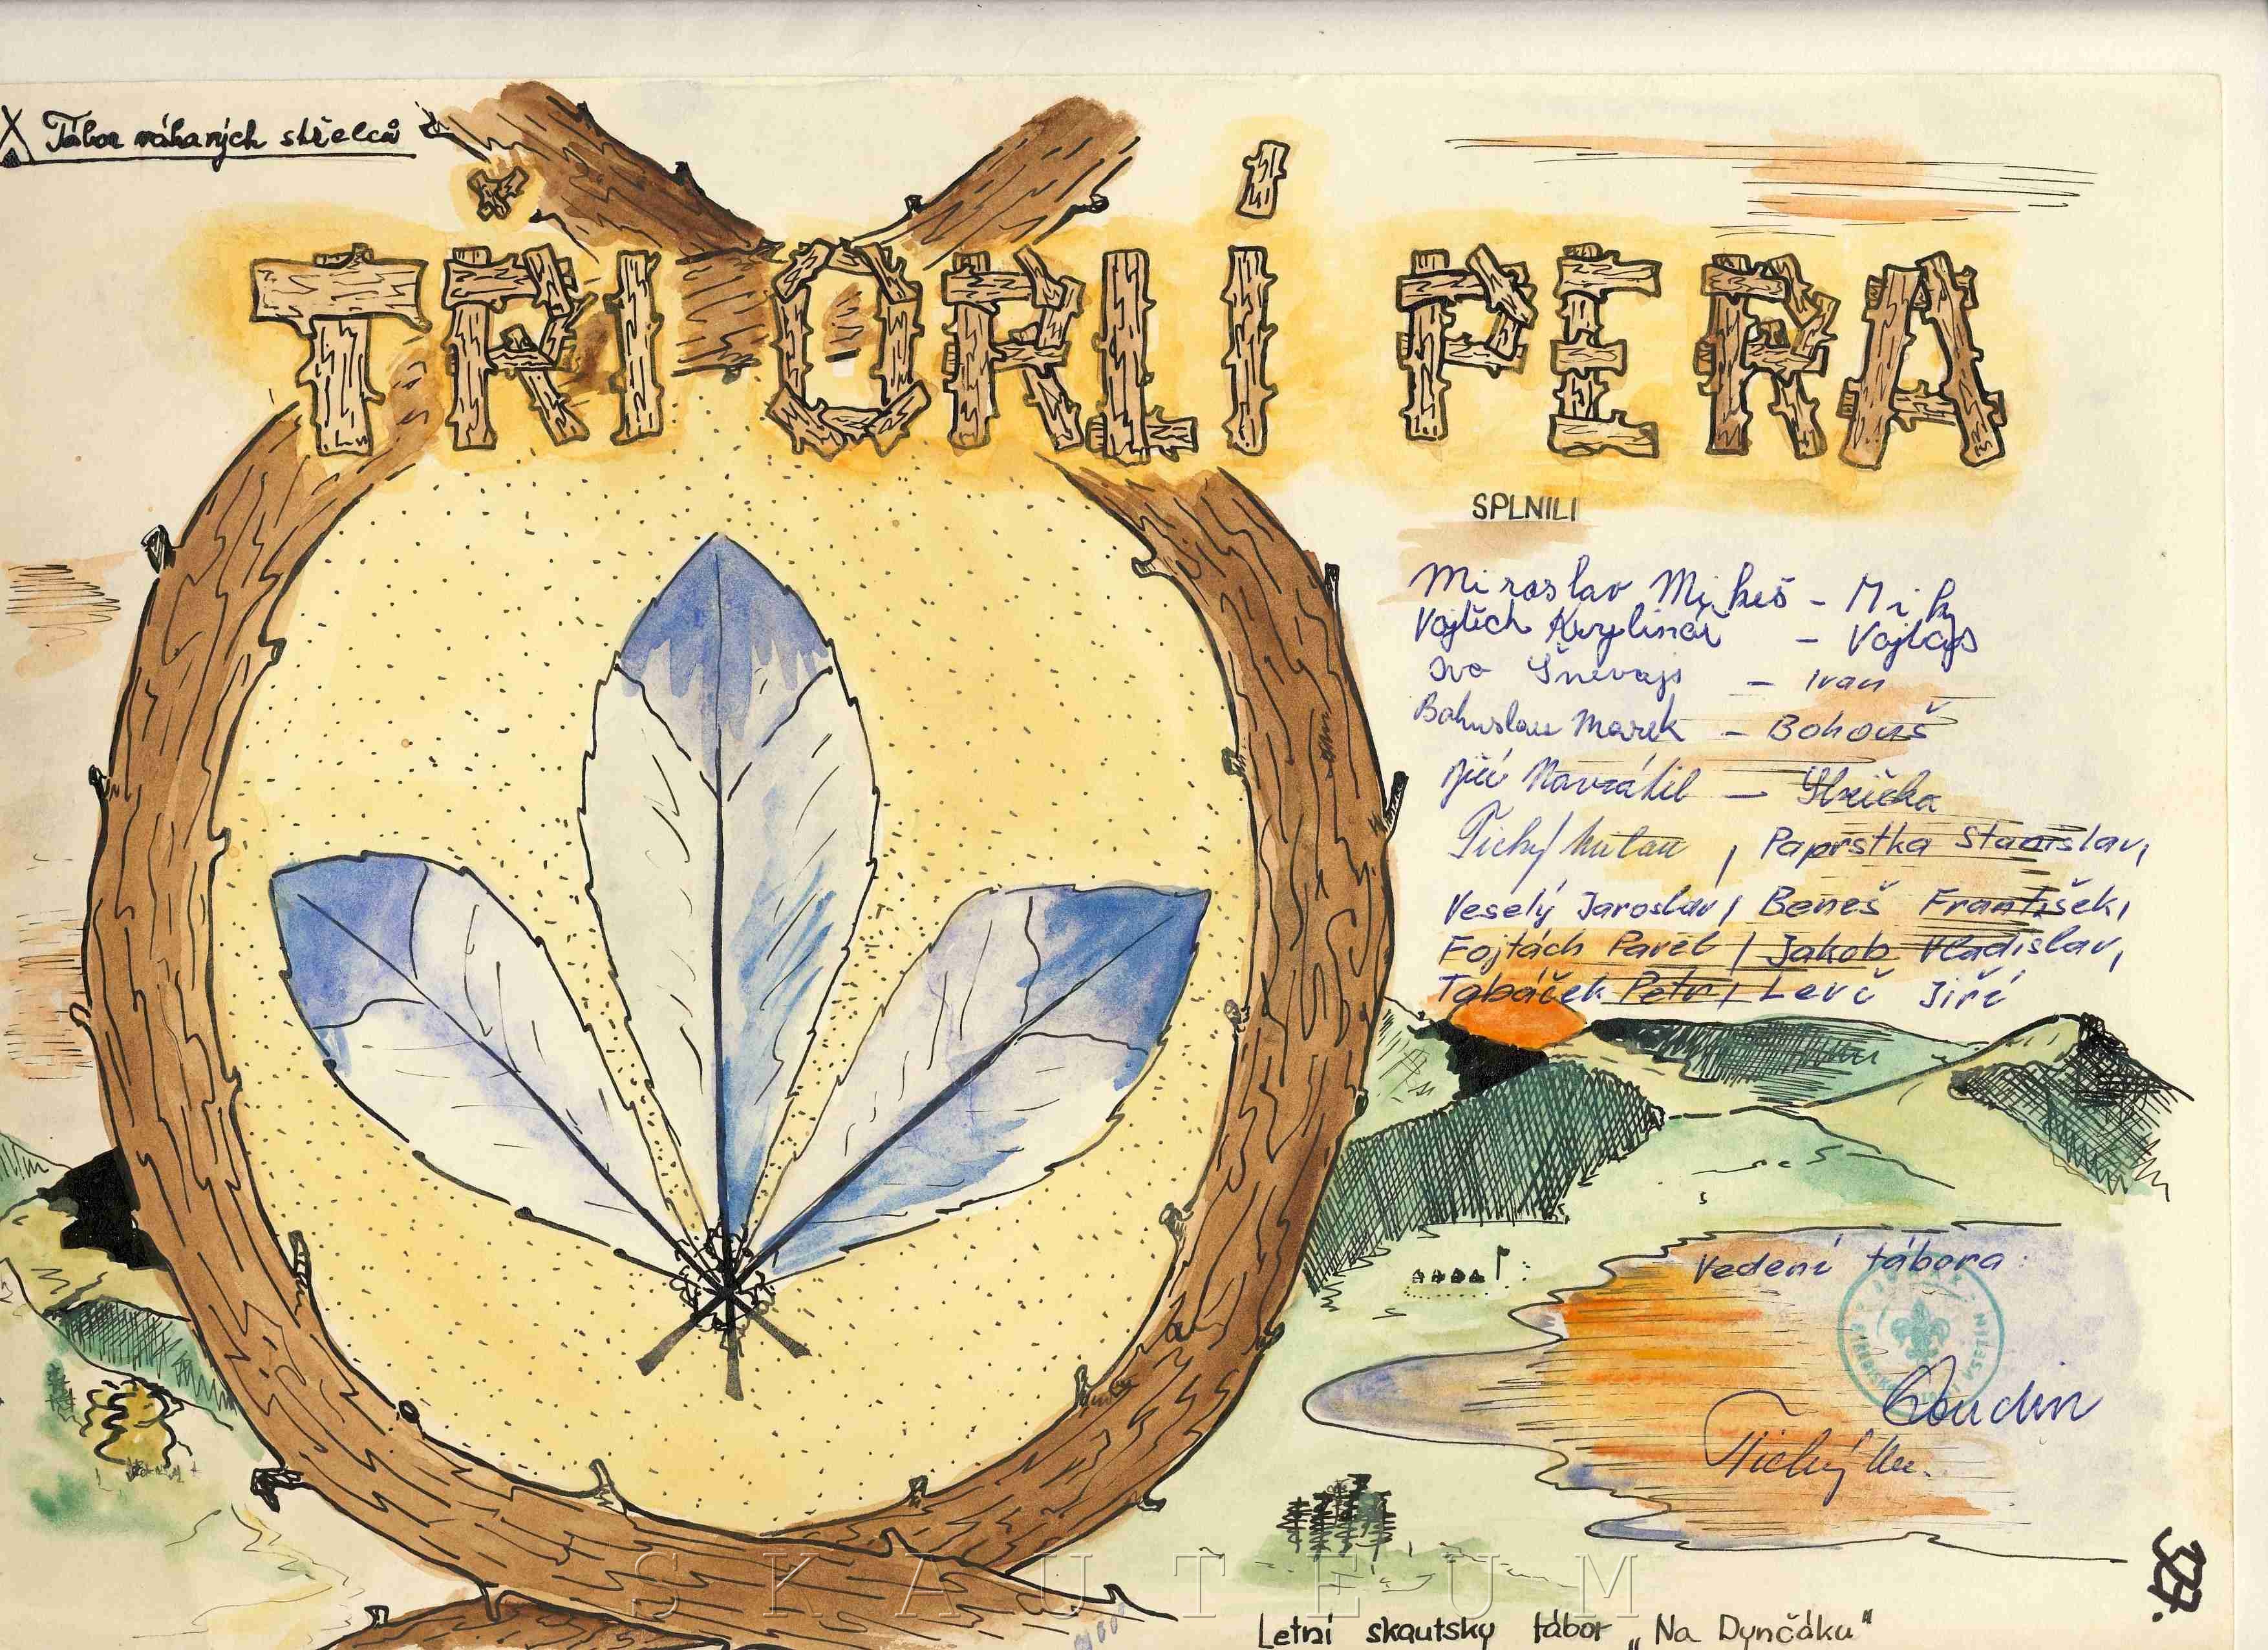 Tábor váhaných střelců
TŘI ORLÍ PERA
SPLNILI
Miroslav Mikeš - Miky
Vojtěch - Vojtas
Ivo Šnevajs - Ivan
Bohuslav Marek - Bohouš
Jiří Navrátil -
Tichý Milan, Paprstka Stanislav,
Veselý Jaroslav, Beneš František,
Fojtách Pavel, Jakob Vladislav,
Tabáček Petr, Levč Jiří
Vedení tábora:
Coudin
Tichý M.
SKAUTEUM
Letní skautsky tábor „Na Dynčáku"